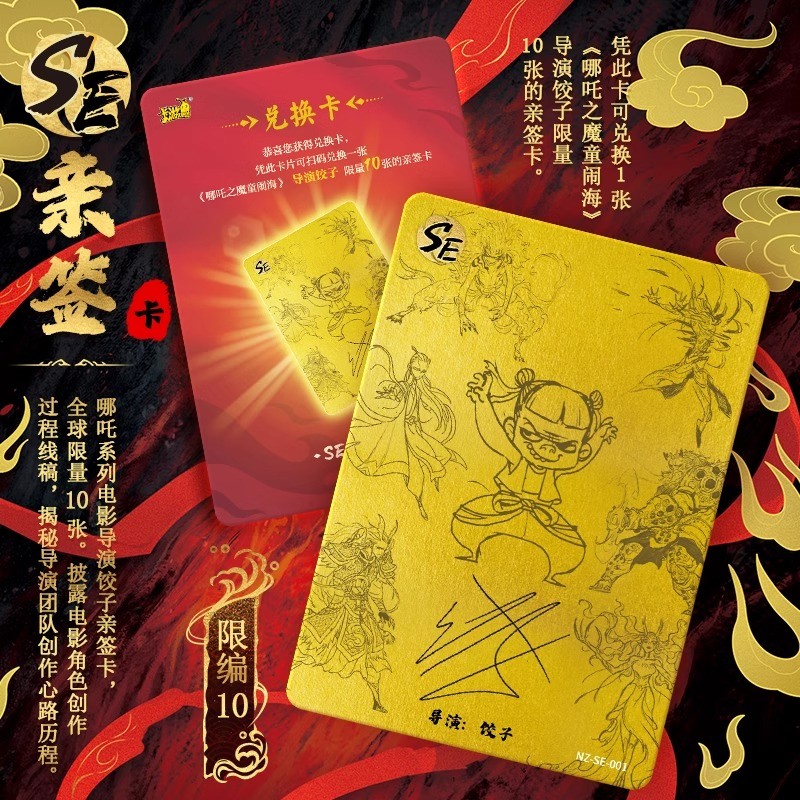 SE
亲签
卡
哪吒系列电影导演饺子亲签卡，
全球限量10张。披露电影角色创作
过程线稿，揭秘导演团队创作心路历程。
限编
10
凭此卡可兑换1张
《哪吒之魔童闹海》
导演饺子限量
10张的亲签卡。
兑换卡
恭喜您获得兑换卡，
凭此卡片可扫码兑换一张
《哪吒之魔童闹海》 导演饺子 限量10张的亲签卡
SE
·SE
SE
导演：饺子
NZ-SE-001